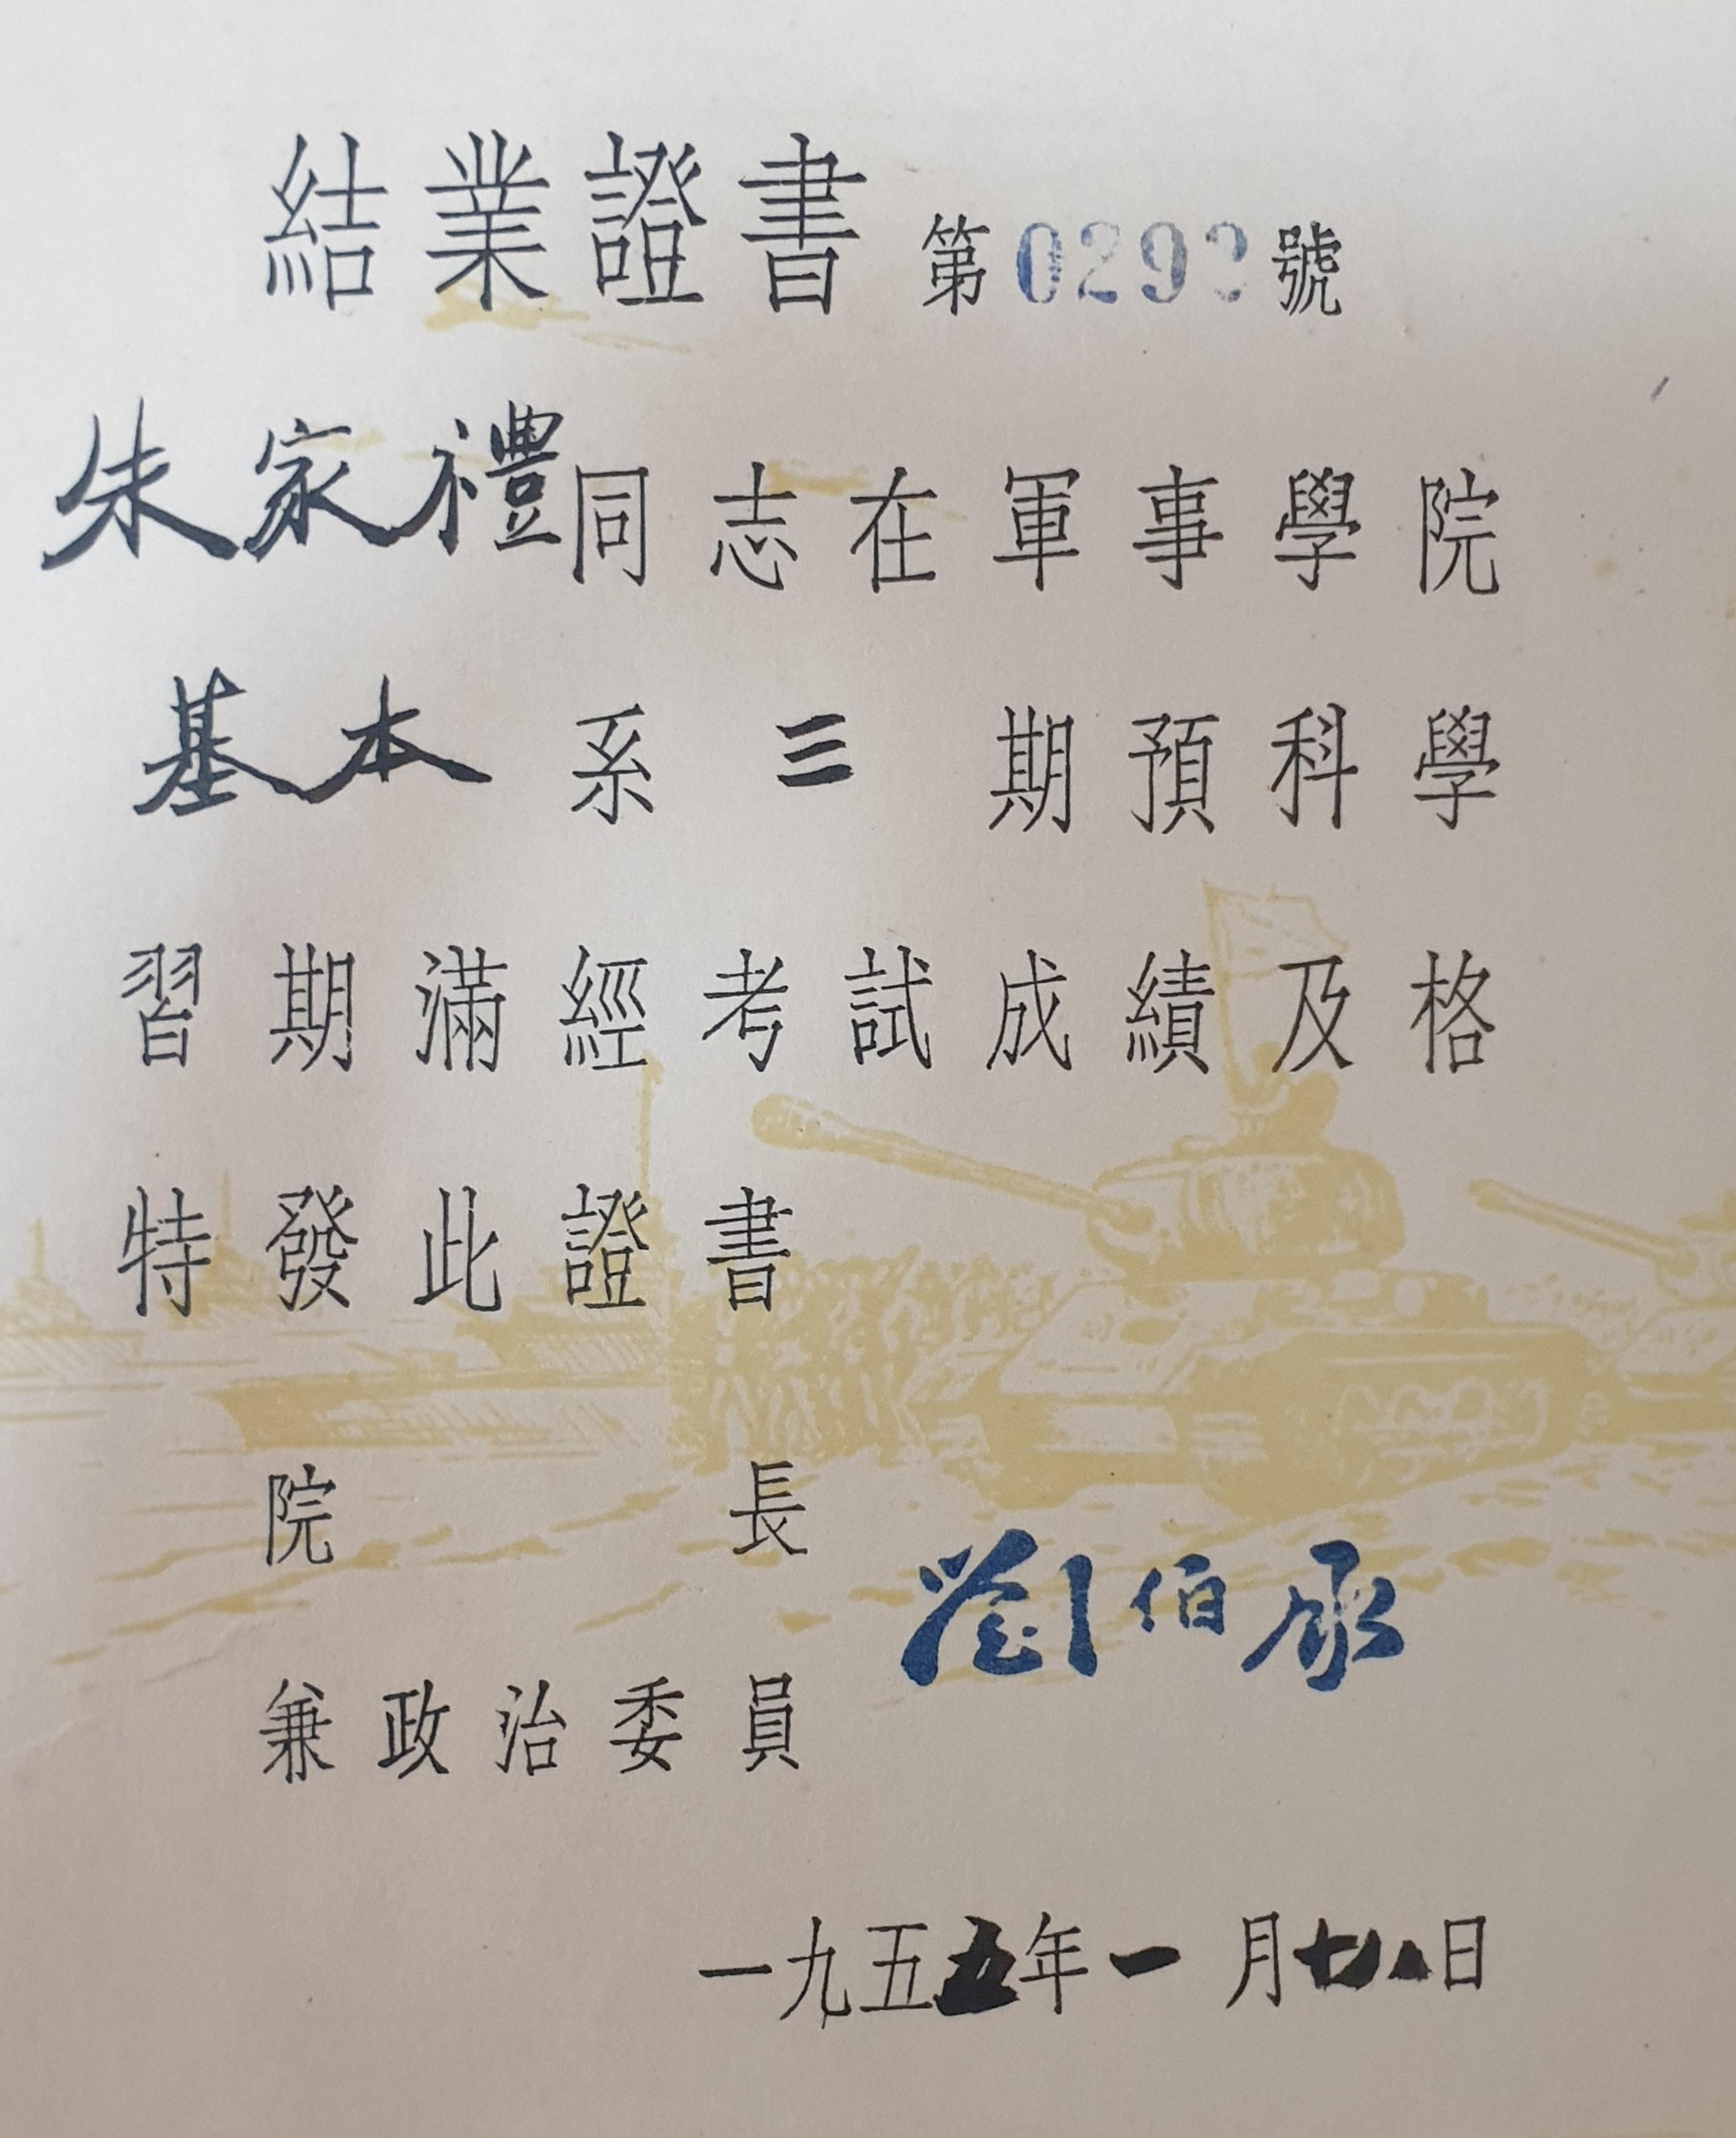 結業證書 第029號
朱家禮同志在軍事學院
基本系三期預科學
習期滿經考試成績及格
特發此證書
院長
劉伯承
兼政治委員
一九五五年一月日